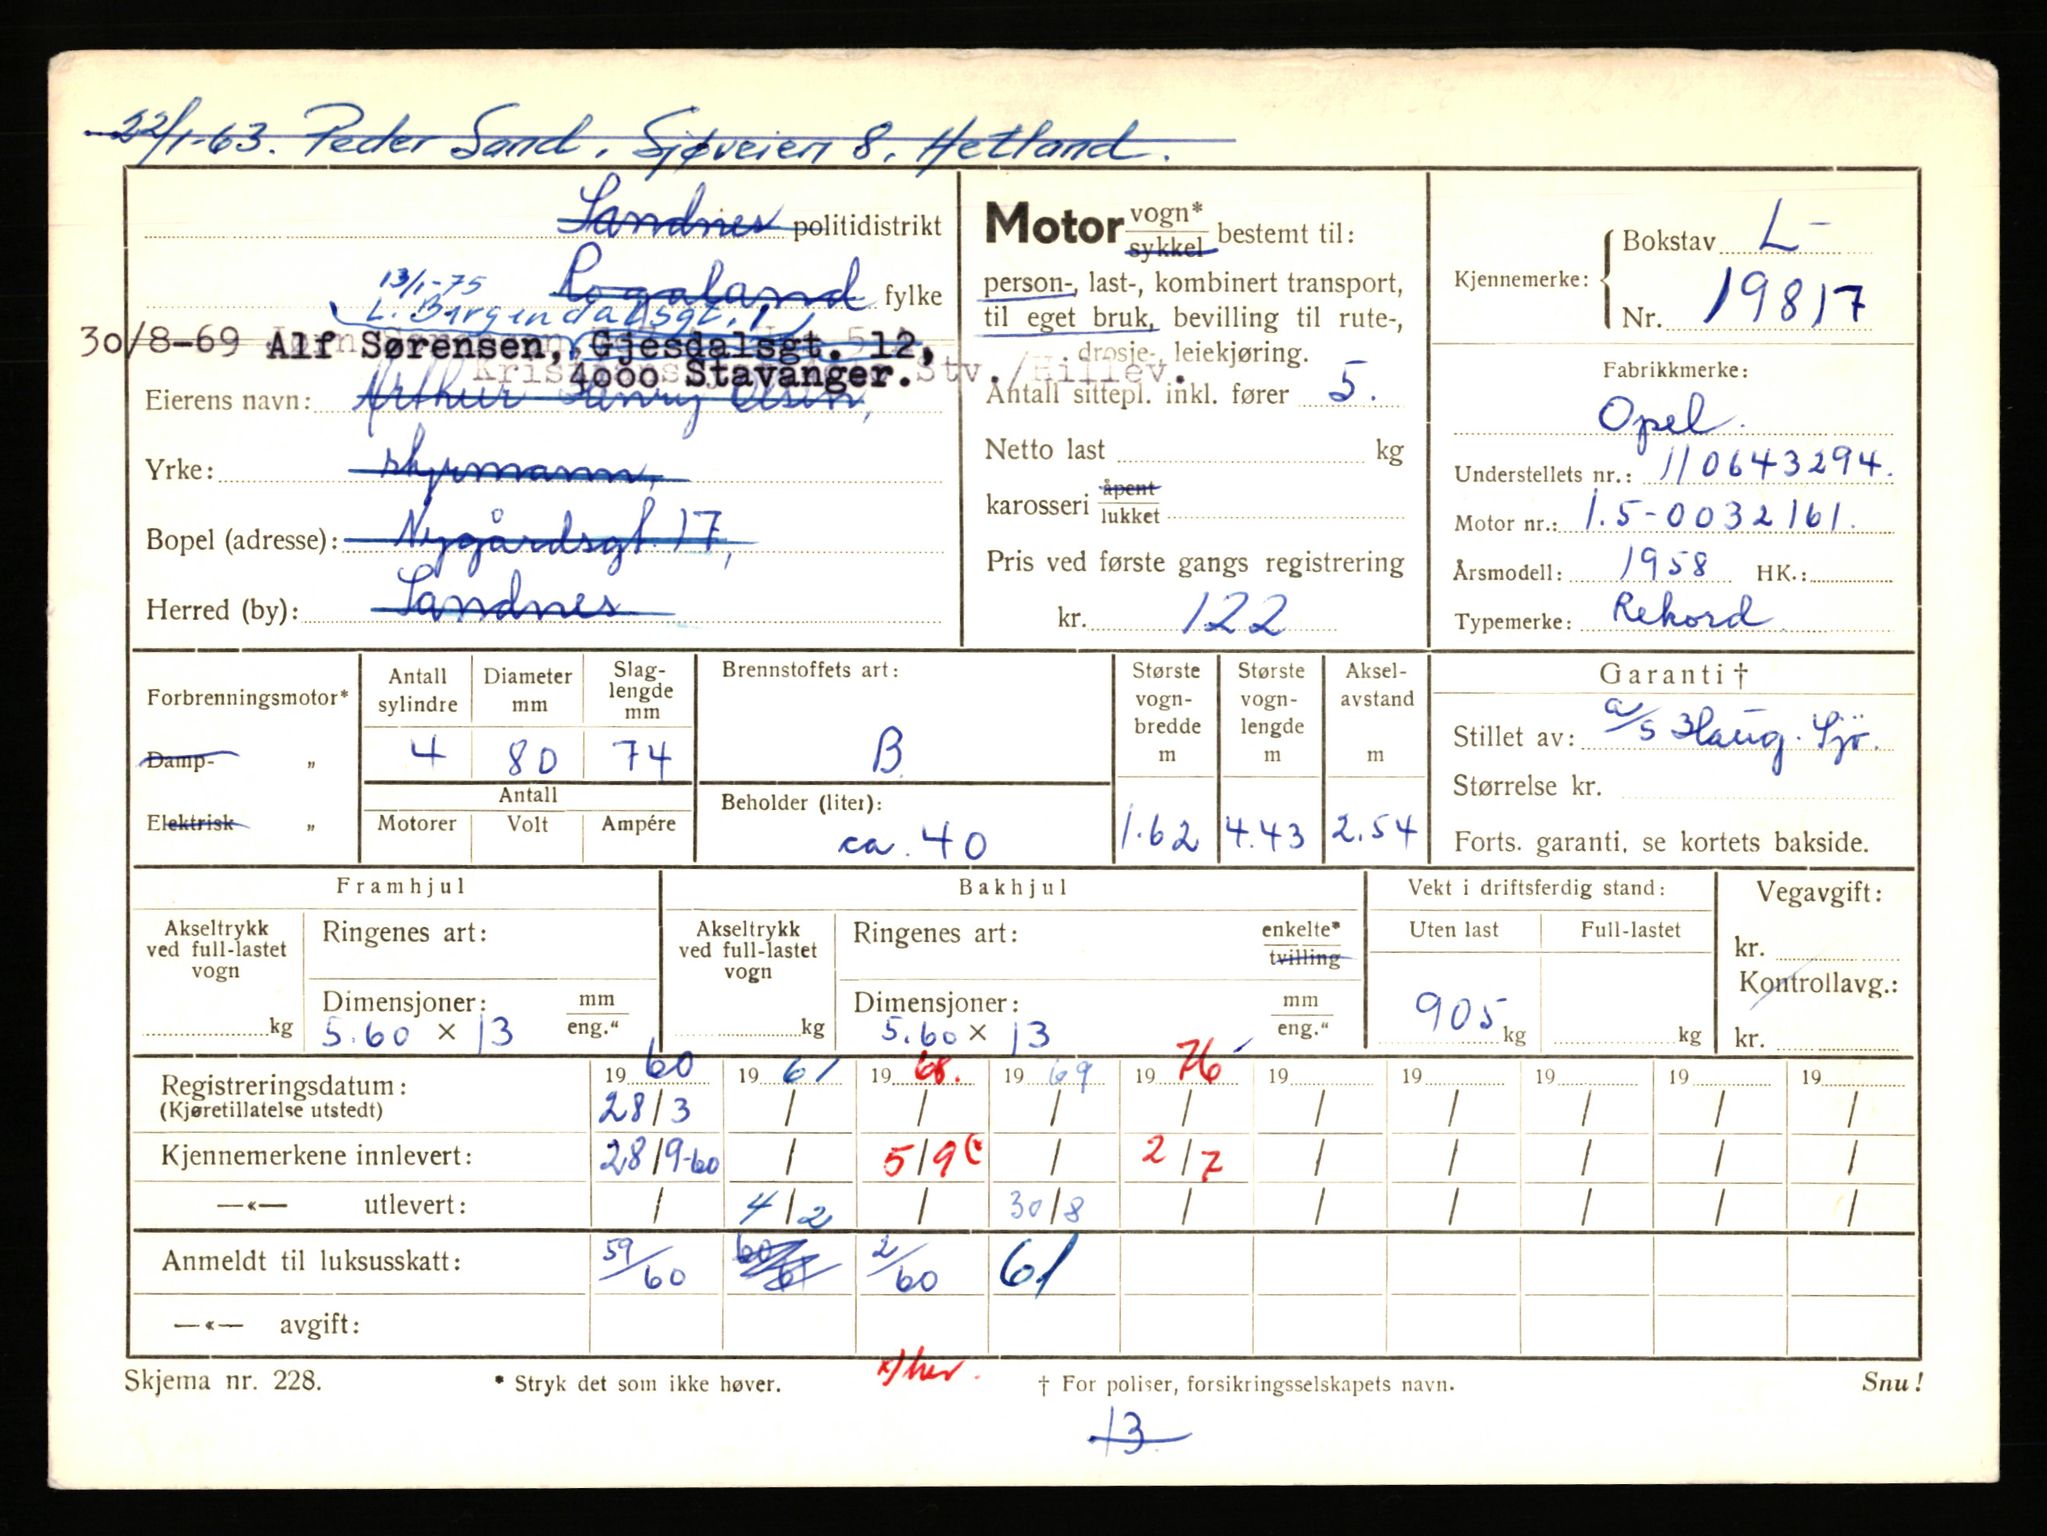 22/1-63. Peder Sand. Sjøveien 8. Hetland.
Sandnes politidistrikt
Rogaland fylke
13/1-75
L. Bergendalsgt. 1
30/8-69 Alf Sørensen, Gjesdalsgt. 12,
4000 Stavanger. Stv./Hillev.
Eierens navn: Arthur Henry Olsen,
Yrke: skyvmann,
Bopel (adresse): Nygårdsgt. 17,
Herred (by): Sandnes
Motor vogn* sykkel bestemt til:
person-, last-, kombinert transport,
til eget bruk, bevilling til rute-,
drosje-, leiekjøring.
Antall sittepl. inkl. fører 5.
Netto last kg
karosseri åpent lukket
Pris ved første gangs registrering
kr. 122
Kjennemerke: Bokstav L-
Nr. 19817
Fabrikkmerke:
Opel.
Understellets nr.: 110643294.
Motor nr.: 1.5-0032161.
Årsmodell: 1958 HK.:
Typemerke: Rekord
Forbrenningsmotor*
Damp- „
Elektrisk „
Antall sylindre 4
Diameter mm 80
Slag-lengde mm 74
Antall
Motorer Volt Ampére
Brennstoffets art:
B
Beholder (liter):
ca. 40
Største vogn-bredde m 1.62
Største vogn-lengde m 4.43
Aksel-avstand m 2.54
Garanti †
Stillet av: a/s Haug. Sjø.
Størrelse kr.
Forts. garanti, se kortets bakside.
Framhjul
Akseltrykk ved full-lastet vogn kg
Ringenes art:
Dimensjoner: mm eng."
5.60 × 13
Bakhjul
Akseltrykk ved full-lastet vogn kg
Ringenes art: enkelte* tvilling
Dimensjoner: mm eng."
5.60 × 13
Vekt i driftsferdig stand:
Uten last Full-lastet
905 kg kg
Vegavgift:
kr.
Kontrollavg.:
kr.
Registreringsdatum: 19 60 19 61 19 68. 19 69 19 76 19 19 19 19 19
(Kjøretillatelse utstedt) 28/3 / / / / / / / / /
Kjennemerkene innlevert: 28/9-60 / 5/9 / 2/7 / / / / /
—«— utlevert: / 4/2 / 30/8 / / / / / /
Anmeldt til luksusskatt: 59/60 60/61 2/60 61
—«— avgift:
x) her.
Skjema nr. 228. * Stryk det som ikke høver. † For poliser, forsikringsselskapets navn. Snu!
13